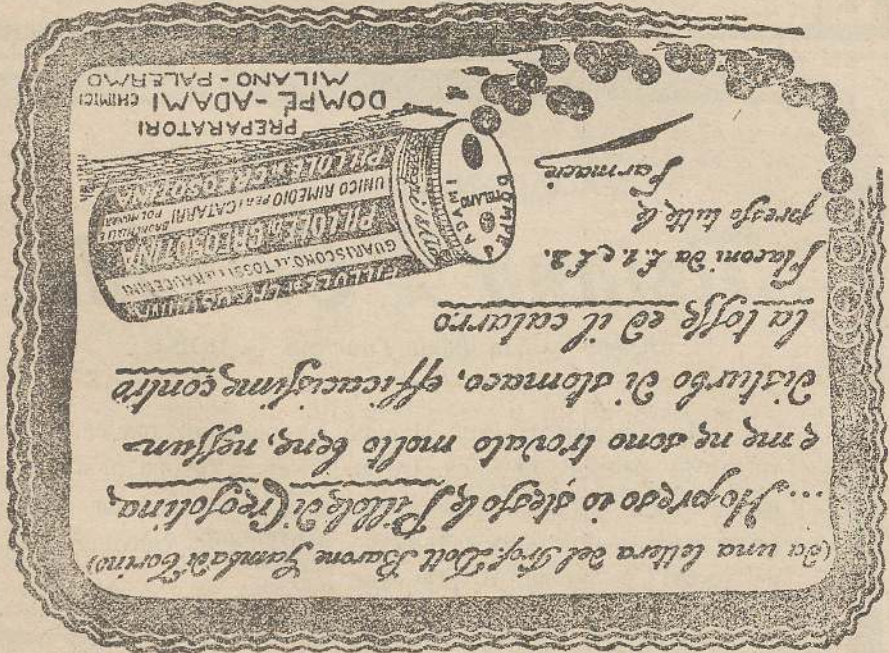 (Da una lettera del Prof. Dott. Barone Gamba di Torino)
... Ho preso io stesso le Pillole di Creosotina,
e me ne sono trovato molto bene, nessun
disturbo di stomaco, efficacissime contro
la tosse ed il catarro
Flaconi da L. 1. e L. 2.
presso tutte le
Farmacie
DOMPÉ
ADAMI
MILANO
PILLOLE DI CREOSOTINA
GUARISCONO LE TOSSI LE RAUCEDINI
PILLOLE DI CREOSOTINA
UNICO RIMEDIO PER I CATARRI BRONCHIALI E POLMONARI
PILLOLE DI CREOSOTINA
PREPARATORI
DOMPÉ-ADAMI CHIMICI
MILANO-PALERMO